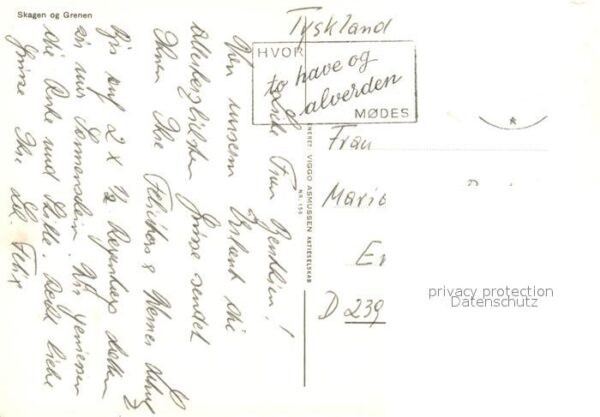 Skagen og Grenen
Liebe Frau
Von unserem Urlaub die
allerherzlichsten Grüsse sendet
Ihnen Ihre Felicitas & Werner
Bis auf 2 x 1/2 Regentage hatten
wir nur Sonnenschein. Wir geniessen
die Ruhe und Stille. Recht liebe
Grüsse Ihre
Tyskland
HVOR
to have og
alverden
MØDES
ENERET VIGGO ASMUSSEN AKTIESELSKAB
NR. 156
Frau
Marie
D 239
privacy protection
Datenschutz